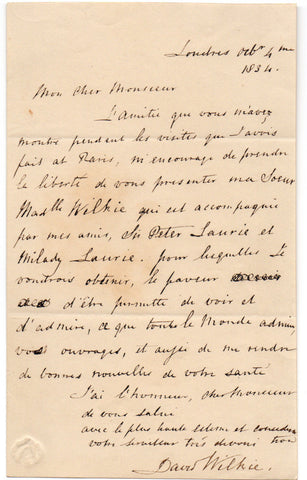 Londres Octr 4me
1834.
Mon cher Monsieur
L'amitie que vous m'avez
montre pendent les visites que J'avois
fait at Paris, m'encourage de prendre
la liberte de vous presenter ma Soeur
Madlle Wilkie qui est accompagnie
par mes amis, Sir Peter Laurie et
Milady Laurie. pour lesquelles Je
voudrois obtenir, le faveur
d'être permette de voir et
d'admirer, ce que toute le Monde admire
vos ouvrages, et aussi de me rendre
de bonnes nouvelles de votre santé
J'ai l'honneur, cher Monsieur
de vous salué
avec le plus haute esteme et consideration
votre serviteur tres devoué
David Wilkie.